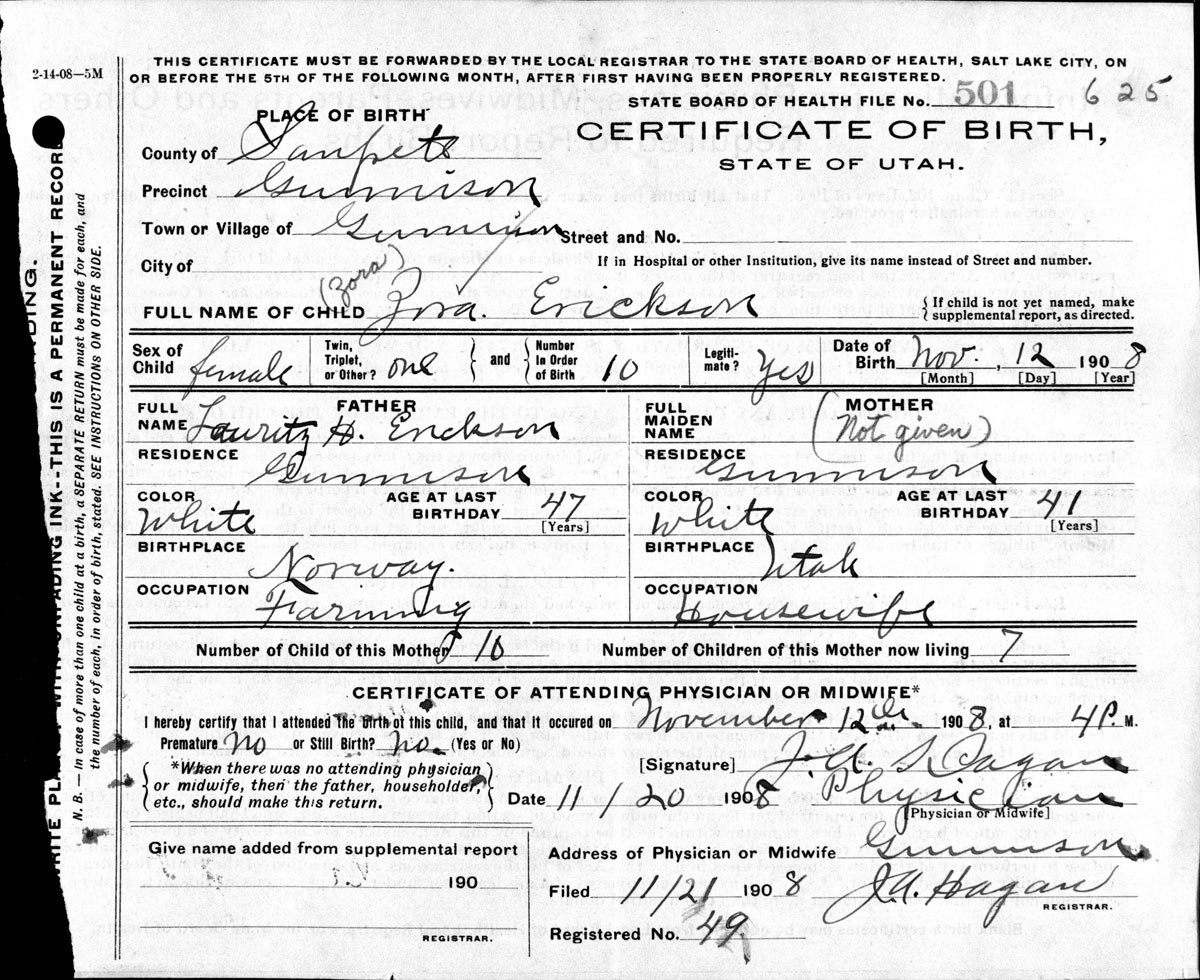 2-14-08—5M
THIS CERTIFICATE MUST BE FORWARDED BY THE LOCAL REGISTRAR TO THE STATE BOARD OF HEALTH, SALT LAKE CITY, ON
OR BEFORE THE 5TH OF THE FOLLOWING MONTH, AFTER FIRST HAVING BEEN PROPERLY REGISTERED.
STATE BOARD OF HEALTH FILE No. 501 625
PLACE OF BIRTH
CERTIFICATE OF BIRTH,
STATE OF UTAH.
County of Sanpete
Precinct Gunnison
Town or Village of Gunnison Street and No.
City of If in Hospital or other Institution, give its name instead of Street and number.
(Zora)
FULL NAME OF CHILD Zora. Erickson { If child is not yet named, make supplemental report, as directed.
Sex of Child female Twin, Triplet, or Other? one } and { Number in Order of Birth 10 Legitimate? Yes Date of Birth Nov. 12 1908
[Month] [Day] [Year]
FATHER MOTHER
FULL NAME Lauritz H. Erickson FULL MAIDEN NAME (Not given)
RESIDENCE Gunnison RESIDENCE Gunnison
COLOR White AGE AT LAST BIRTHDAY 47 [Years] COLOR White AGE AT LAST BIRTHDAY 41 [Years]
BIRTHPLACE Norway. BIRTHPLACE Utah
OCCUPATION Farming OCCUPATION Housewife
Number of Child of this Mother 10 Number of Children of this Mother now living 7
CERTIFICATE OF ATTENDING PHYSICIAN OR MIDWIFE*
I hereby certify that I attended the birth of this child, and that it occured on November 12th 1908, at 4 P. M.
Premature? No or Still Birth? no. (Yes or No)
*When there was no attending physician or midwife, then the father, householder, etc., should make this return.
[Signature] J. A. Hagan
Date 11/20 1908 Physician
[Physician or Midwife]
Give name added from supplemental report
190
REGISTRAR.
Address of Physician or Midwife Gunnison
Filed 11/21 1908 J.A. Hagan
REGISTRAR.
Registered No. 49
WRITE PLAINLY WITH UNFADING INK--THIS IS A PERMANENT RECORD
N. B. — In case of more than one child at a birth, a SEPARATE RETURN must be made for each, and
the number of each, in order of birth, stated. SEE INSTRUCTIONS ON OTHER SIDE.